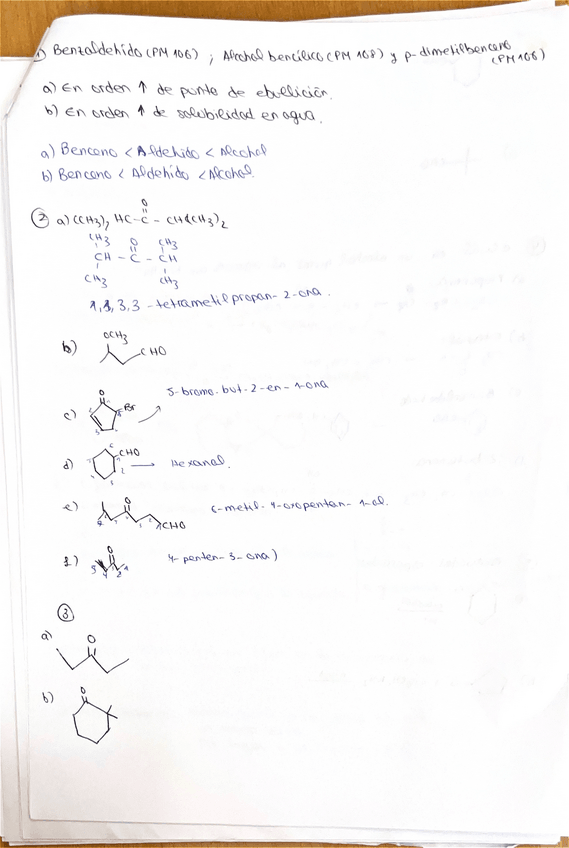 1) Benzaldehído (PM 106) ; Alcohol bencílico (PM 108) y p-dimetilbenceno (PM 106)
a) En orden ↑ de punto de ebullición.
b) En orden ↑ de solubilidad en agua.
a) Benceno < Aldehído < Alcohol
b) Benceno < Aldehído < Alcohol.
2) a) (CH3)2 HC-C-CH(CH3)2
O
CH3 O CH3
CH - C - CH
CH3 CH3
1,1,3,3-tetrametilpropan-2-ona.
b) OCH3 CHO
c) O Br 5-bromo-but-2-en-1-ona
d) CHO → Hexanal.
e) O CHO 6-metil-4-oxopentan-1-al.
f) O 4-penten-3-ona)
3
a) O
b) O